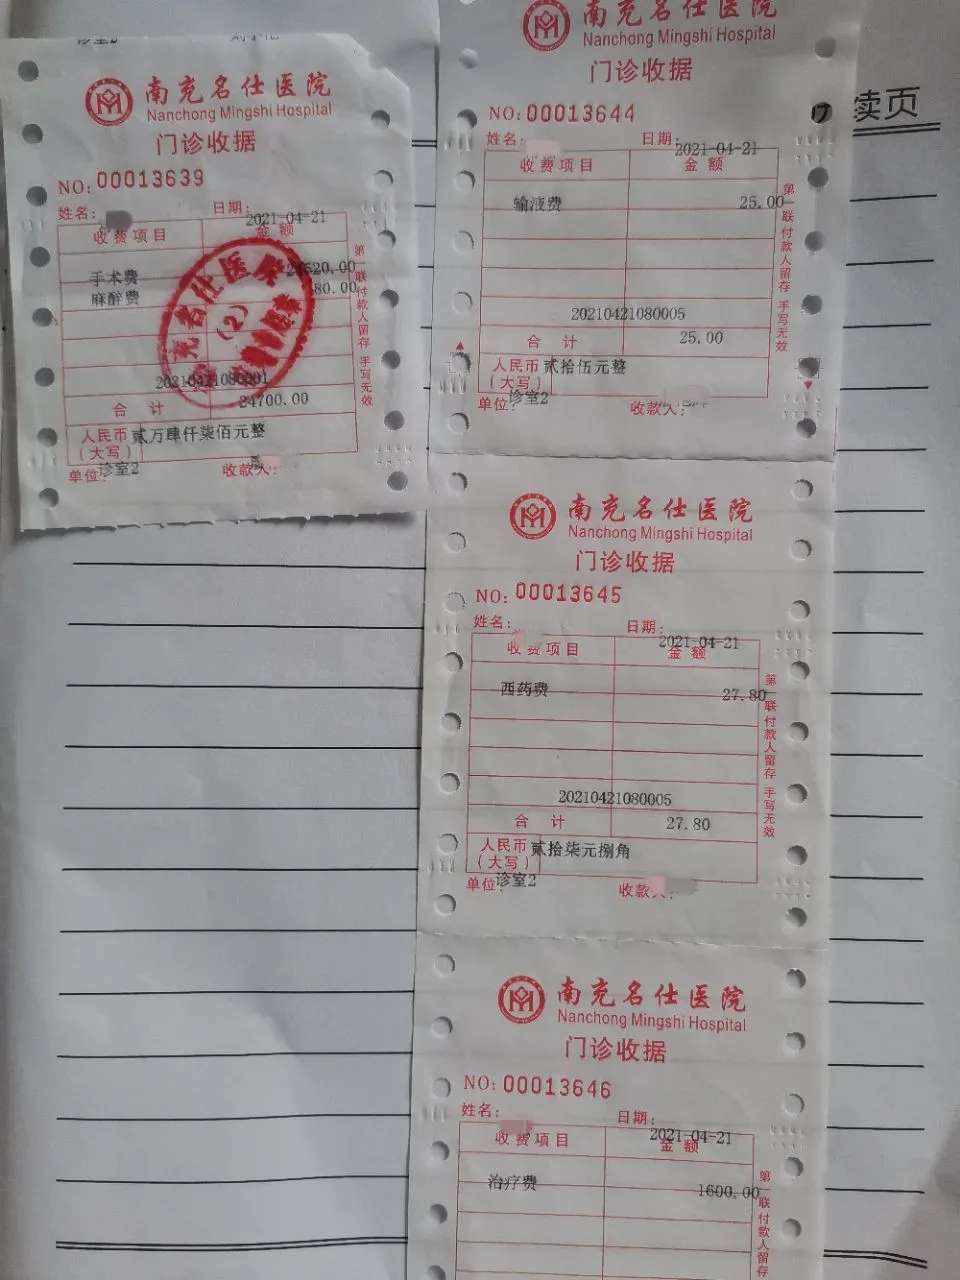 南充名仕医院
Nanchong Mingshi Hospital
门诊收据
NO: 00013639
姓名: 日期: 2021-04-21
收费项目 金额
手术费 24620.00
麻醉费 80.00
20210421080001
合计 24700.00
人民币(大写) 贰万肆仟柒佰元整
单位: 诊室2 收款人:
第 联付款人留存 手写无效
名仕医
(2)
南充名仕医院
Nanchong Mingshi Hospital
门诊收据
NO: 00013644
姓名: 日期: 2021-04-21
收费项目 金额
输液费 25.00
20210421080005
合计 25.00
人民币(大写) 贰拾伍元整
单位: 诊室2 收款人:
第 联付款人留存 手写无效
17
续页
南充名仕医院
Nanchong Mingshi Hospital
门诊收据
NO: 00013645
姓名: 日期: 2021-04-21
收费项目 金额
西药费 27.80
20210421080005
合计 27.80
人民币(大写) 贰拾柒元捌角
单位: 诊室2 收款人:
第 联付款人留存 手写无效
南充名仕医院
Nanchong Mingshi Hospital
门诊收据
NO: 00013646
姓名: 日期: 2021-04-21
收费项目 金额
治疗费 1600.00
第 联付款人留存